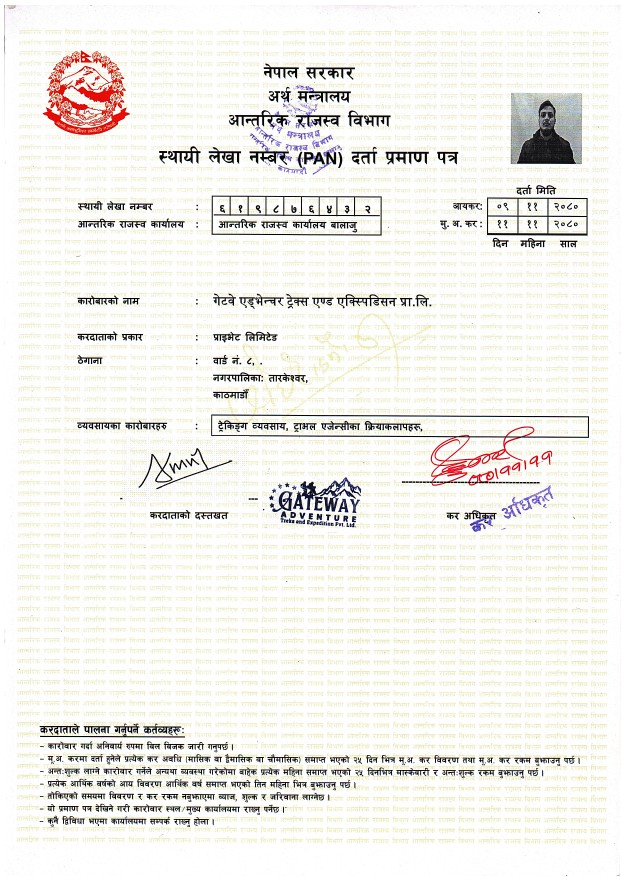 नेपाल सरकार
अर्थ मन्त्रालय
आन्तरिक राजस्व विभाग
स्थायी लेखा नम्बर (PAN) दर्ता प्रमाण पत्र
दर्ता मिति
स्थायी लेखा नम्बर : ६ १ ९ ८ ७ ६ ४ ३ २
आयकर: ०९ ११ २०८०
आन्तरिक राजस्व कार्यालय : आन्तरिक राजस्व कार्यालय बालाजु
मु. अ. कर : ११ ११ २०८०
दिन महिना साल
कारोबारको नाम : गेटवे एड्भेन्चर ट्रेक्स एण्ड एक्स्पिडिसन प्रा.लि.
करदाताको प्रकार : प्राइभेट लिमिटेड
ठेगाना : वार्ड नं. ८, .
नगरपालिका: तारकेश्वर,
काठमाडौँ
व्यवसायका कारोबारहरु : ट्रेकिङ्ग व्यवसाय, ट्राभल एजेन्सीका क्रियाकलापहरु,
GATEWAY
ADVENTURE
Treks and Expedition Pvt. Ltd.
करदाताको दस्तखत
कर अधिकृत
कर अधिकृत
करदाताले पालना गर्नुपर्ने कर्तव्यहरू:
- कारोवार गर्दा अनिवार्य रुपमा बिल बिजक जारी गनुपर्छ।
- मू.अ. करमा दर्ता हुनेले प्रत्येक कर अवधि (मासिक वा द्वैमासिक वा चौमासिक) समाप्त भएको २५ दिन भित्र मू.अ. कर विवरण तथा मू.अ. कर रकम बुझाउनु पर्छ।
- अन्तःशुल्क लाग्ने कारोबार गर्नेले अन्यथा व्यवस्था गरेकोमा बाहेक प्रत्येक महिना समाप्त भएको २५ दिनभित्र मास्केबारी र अन्तःशुल्क रकम बुझाउनु पर्छ।
- प्रत्येक आर्थिक वर्षको आय विवरण आर्थिक वर्ष समाप्त भएको तिन महिना भित्र बुझाउनु पर्छ।
- तोकिएको समयमा विवरण र कर रकम नबुझाएमा व्याज, शुल्क र जरिवाना लाग्नेछ।
- यो प्रमाण पत्र देखिने गरी कारोवार स्थल/मुख्य कार्यालयमा राख्नु पर्नेछ।
- कुनै द्विविधा भएमा कार्यालयमा सम्पर्क राख्नु होला।